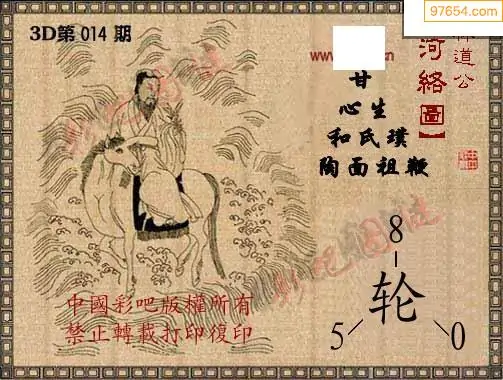 97654.com
3D第 014 期
www.
道公
河絡圖】
甘
心生
和氏璞
陶面祖鞭
彩吧图庫
彩吧图庫
8
轮
5
0
中國彩吧版權所有
禁止轉載打印復印